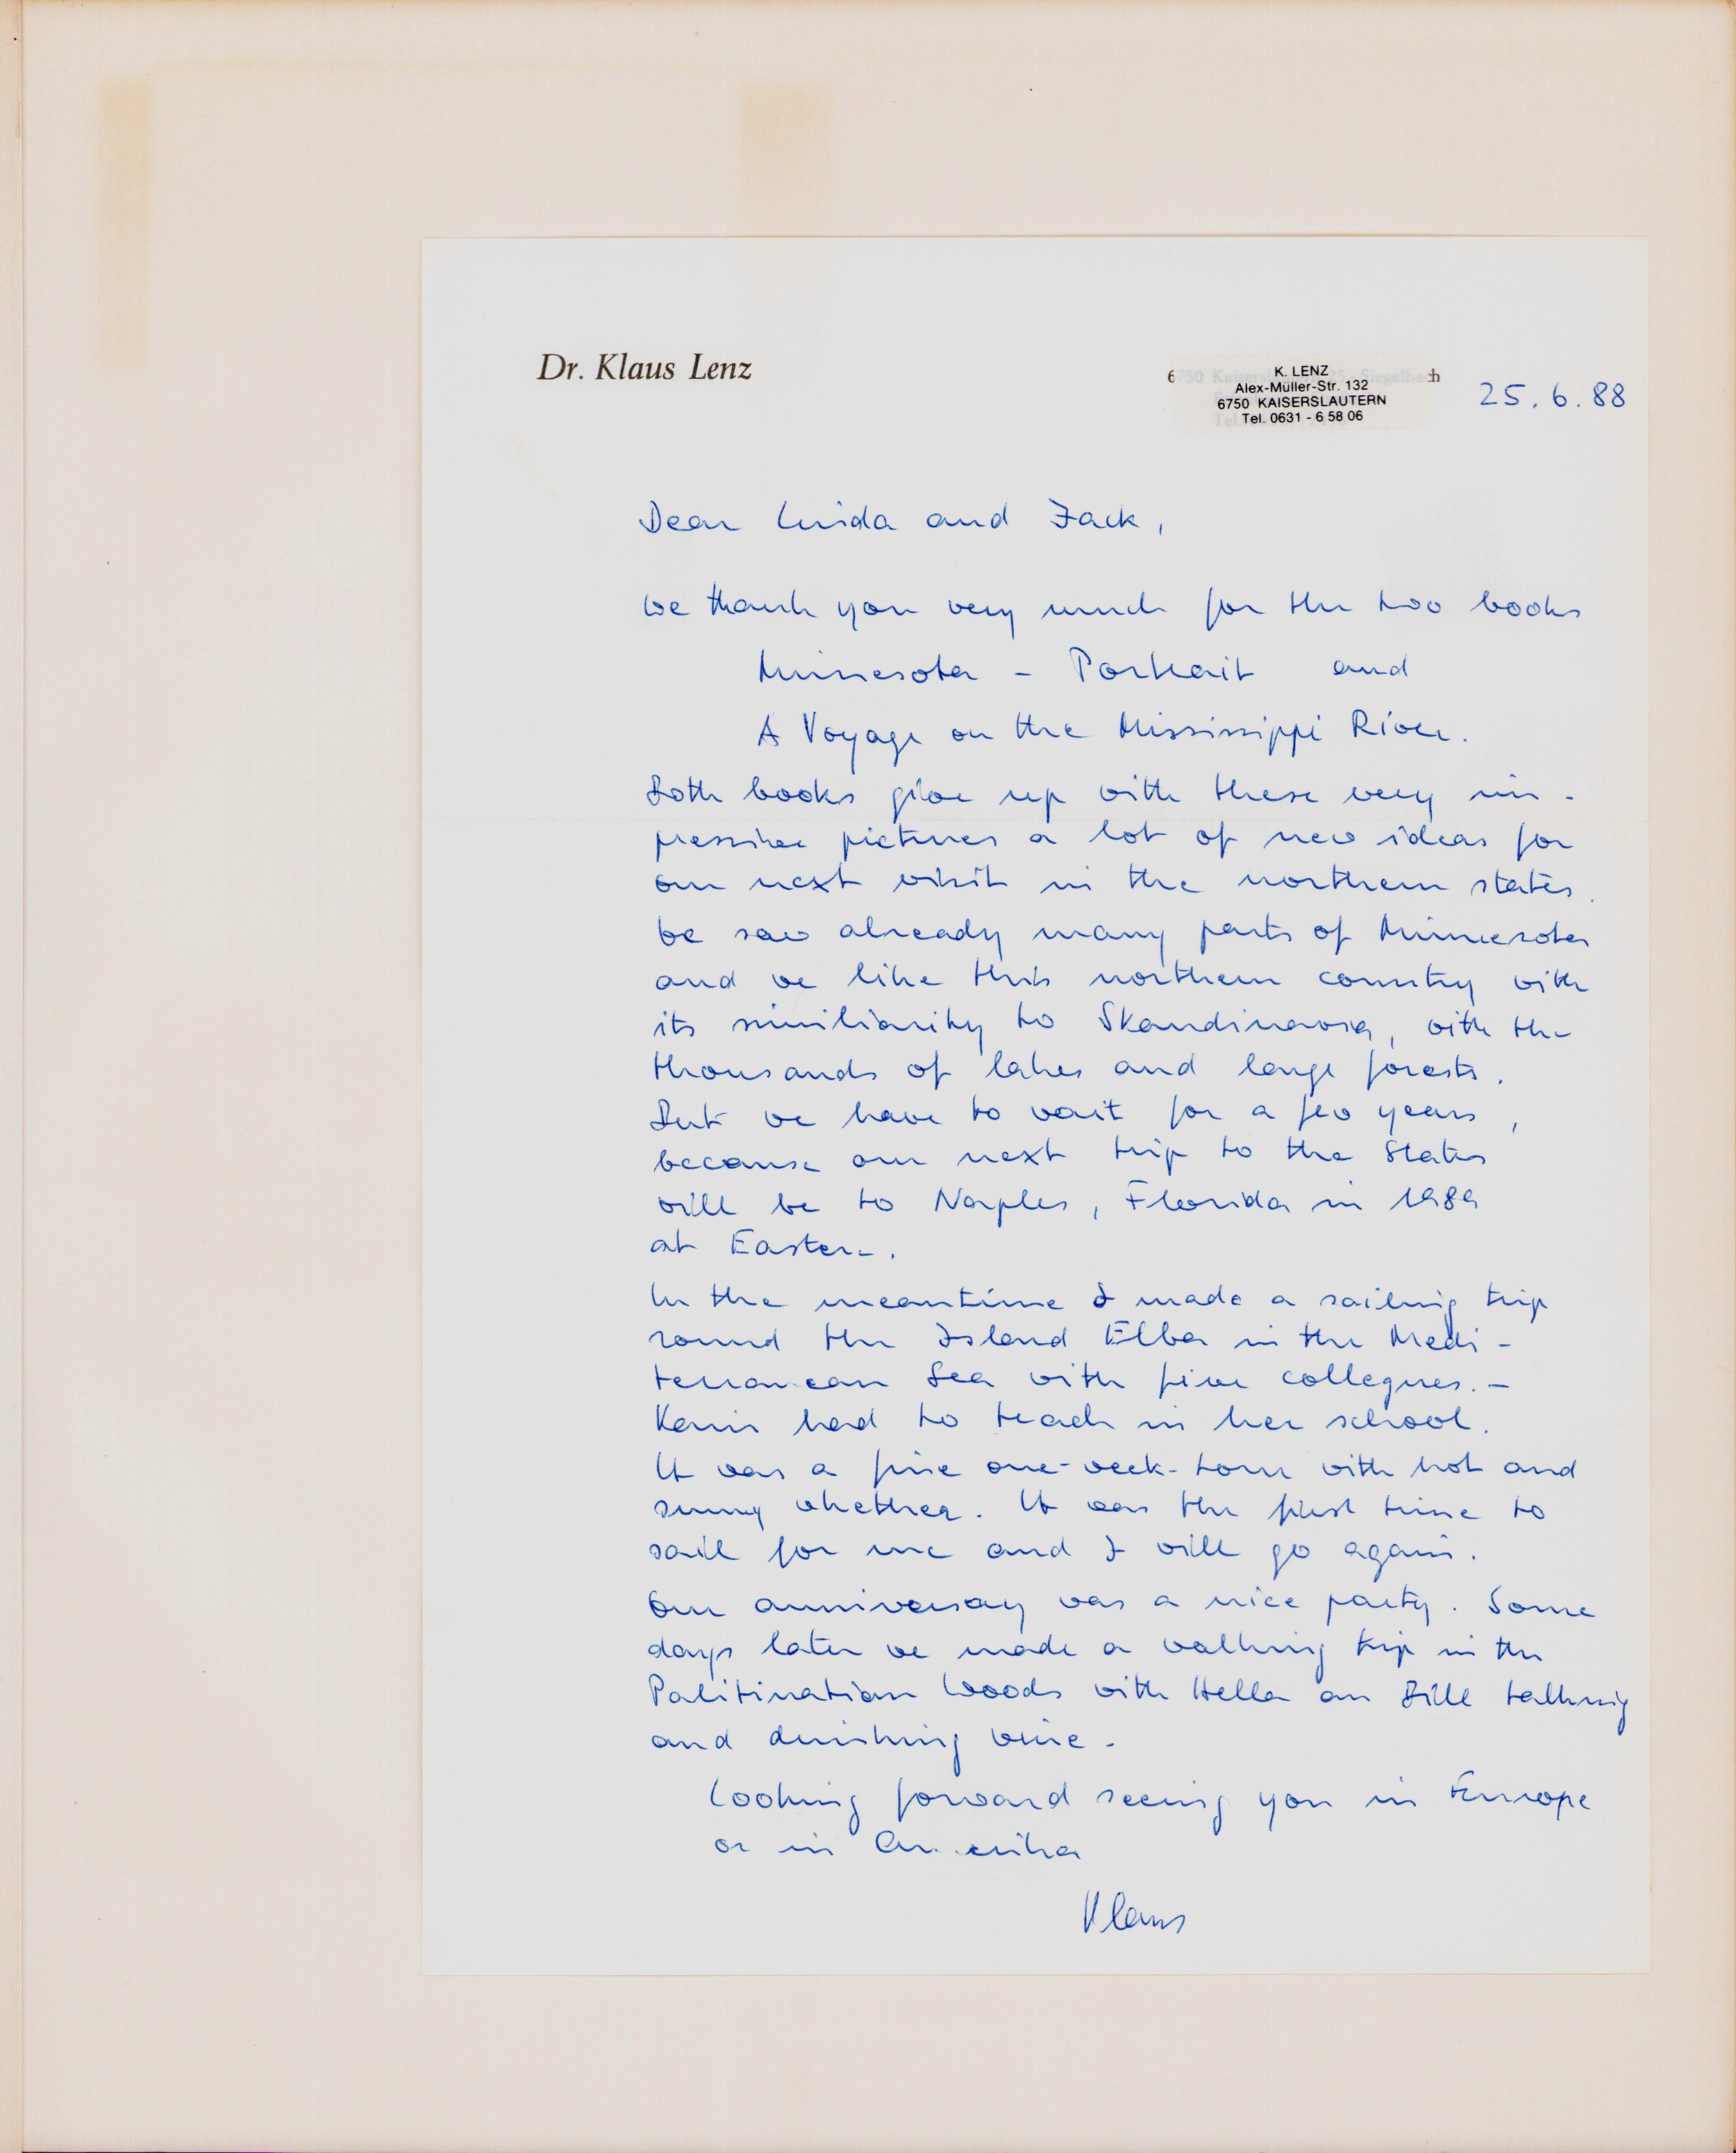 Dr. Klaus Lenz
K. LENZ
Alex-Müller-Str. 132
6750 KAISERSLAUTERN
Tel. 0631 - 6 58 06
25.6.88
Dear Linda and Jack,
We thank you very much for the two books
Minnesota - Portrait and
A Voyage on the Mississippi River.
Both books give up with these very im-
pressive pictures a lot of new ideas for
our next visit in the northern states.
We saw already many parts of Minnesota
and we like this northern country with
its similiarity to Skandinavia, with the
thousands of lakes and large forests.
But we have to wait for a few years,
because our next trip to the States
will be to Naples, Florida in 1989
at Eastern.
In the meantime I made a sailing trip
round the Island Elba in the Medi-
terranean Sea with five collegues. -
Karin had to teach in her school.
It was a fine one-week-tour with hot and
sunny whether. It was the first time to
sail for me and I will go again.
Our anniversay was a nice party. Some
days later we made a walking trip in the
Palitination Woods with Hella an Bill talking
and drinking wine.
Looking forward seeing you in Europe
or in Amerika
Klaus